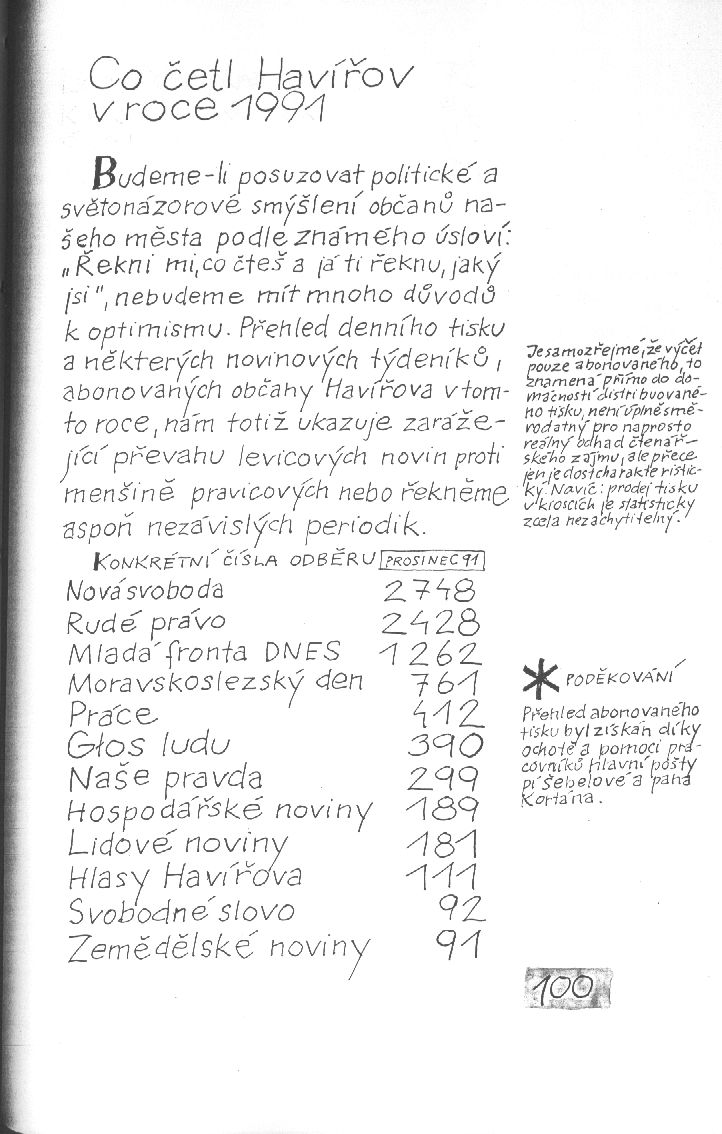 Co četl Havířov
v roce 1991
Budeme-li posuzovat politické a
světonázorové smýšlení občanů na-
šeho města podle známého úsloví:
„Řekni mi, co čteš a já ti řeknu, jaký
jsi", nebudeme mít mnoho důvodů
k optimismu. Přehled denního tisku
a některých novinových týdeníků,
abonovaných občany Havířova v tom-
to roce, nám totiž ukazuje zaráže-
jící převahu levicových novin proti
menšině pravicových nebo řekněme
aspoň nezávislých periodik.
KONKRÉTNÍ ČÍSLA ODBĚRU PROSINEC 91
Nová svoboda 2748
Rudé právo 2428
Mladá fronta DNES 1262
Moravskoslezský den 761
Práce 412
Głos ludu 390
Naše pravda 299
Hospodářské noviny 189
Lidové noviny 181
Hlasy Havířova 111
Svobodné slovo 92
Zemědělské noviny 91
Je samozřejmé, že výčet
pouze abonovaného, to
znamená přímo do do-
mácností distribuované-
ho tisku, není úplně smě-
rodatný pro naprosto
reálný odhad čtenář-
ského zájmu, ale přece
jen je dost charakteristic-
ký. Navíc: prodej tisku
v kioscích je statisticky
zcela nezachytitelný.
* PODĚKOVÁNÍ
Přehled abonovaného
tisku byl získán díky
ochotě a pomoci pra-
covníků hlavní pošty
pí Šebelové a pana
Koriána.
100